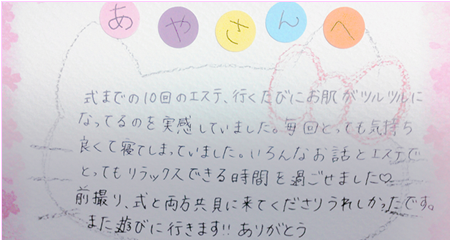 あやさんへ
式までの10回のエステ、行くたびにお肌がツルツルに
なってるのを実感していました。毎回とっても気持ち
良くて寝てしまっていました。いろんなお話とエステで
とってもリラックスできる時間を過ごせました♡
前撮り、式と両方共見に来てくださりうれしかったです。
また遊びに行きます!! ありがとう